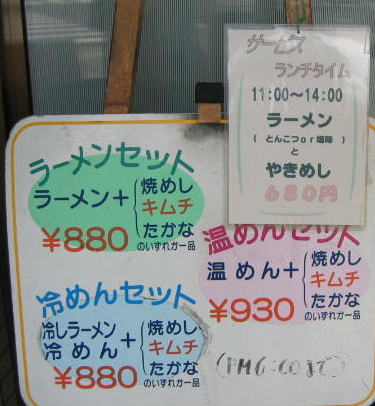 サービス
ランチタイム
11:00～14:00
ラーメン
( とんこつor塩味 )
と
やきめし
680円
ラーメンセット
ラーメン+
焼めし
キムチ
たかな
のいずれか一品
¥880
温めんセット
温めん+
焼めし
キムチ
たかな
のいずれか一品
¥930
冷めんセット
冷しラーメン
冷めん
+
焼めし
キムチ
たかな
のいずれか一品
¥880
(PM6:00まで)